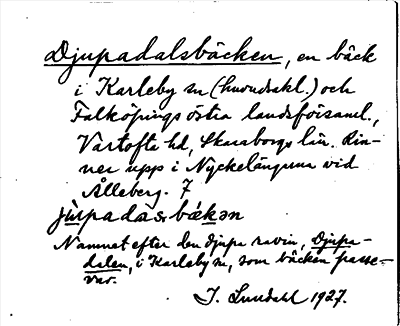 Djupadalsbäcken, en bäck
i Karleby sn (huvudsakl.) och
Falköpings östra landsförsaml.,
Vartofta hd, Skaraborgs län. Rin-
ner upp i Nyckelängarna vid
Ålleberg. 7
jùpadas bǽkən
Namnet efter den djupa ravin, Djupa-
dalen, i Karleby sn, som bäcken passe-
rar.
J. Lundahl 1927.